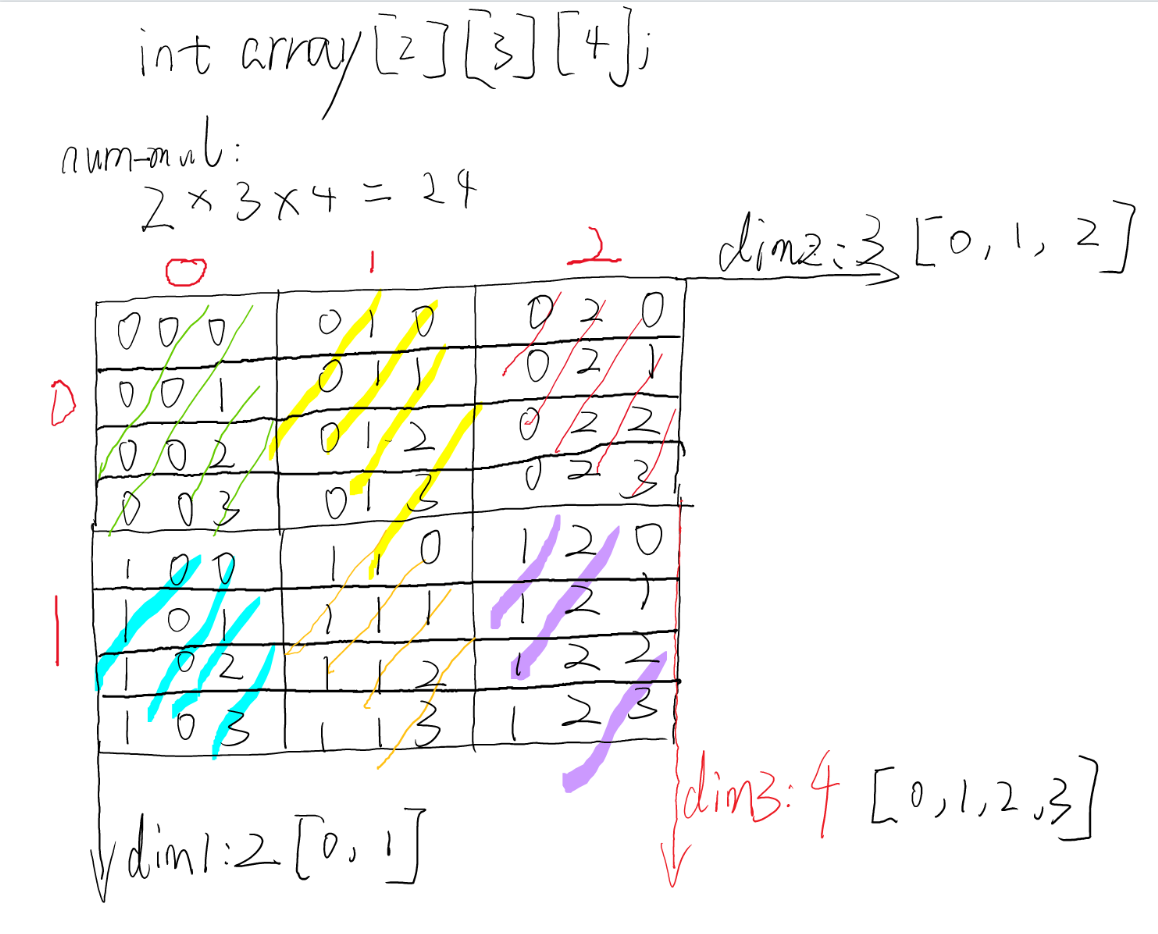 int array[2][3][4];
num-mul:
2×3×4=24
dim2:3 [0,1,2]
0 1 2
000 010 020
001 011 021
0
002 012 022
003 013 023
100 110 120
101 111 121
1
102 112 122
103 113 123
dim3:4 [0,1,2,3]
dim1:2[0,1]